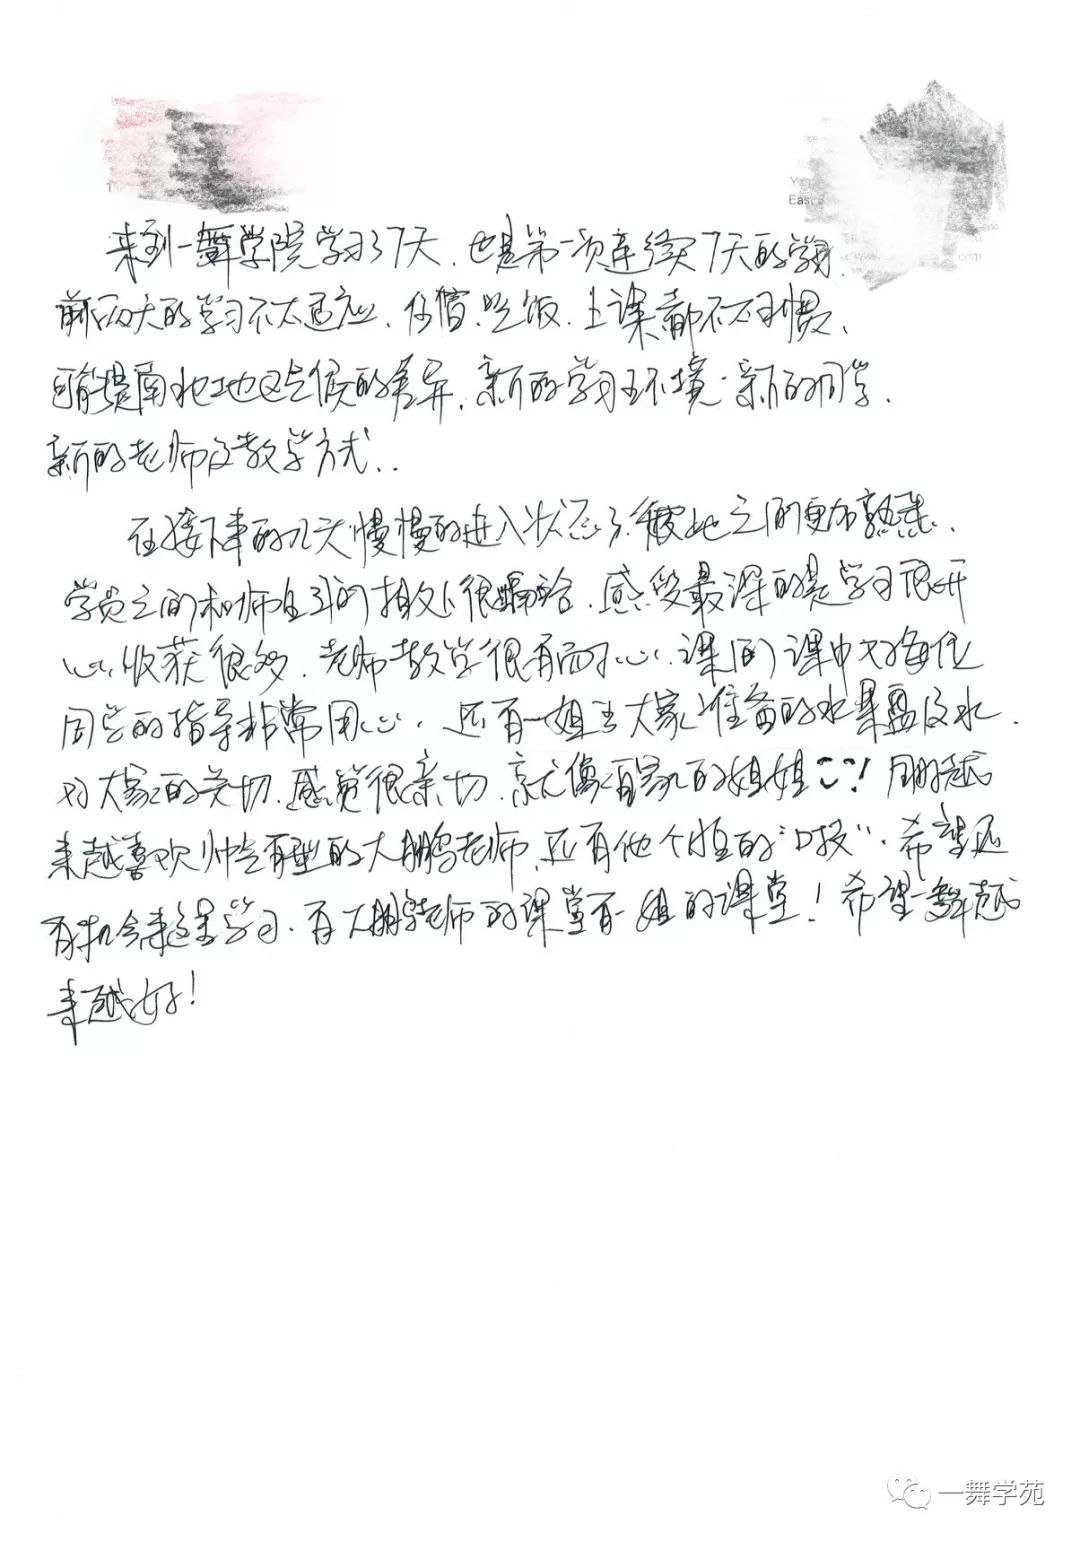 Eas
com
来到一舞学院学习了7天，也是第一次连续7天的学习，
前两天的学习不太适应，住宿，吃饭，上课都不太习惯，
可能是南北地区气候的差异，新的学习环境，新的同学，
新的老师及教学方式..
在接下来的几天慢慢的进入状态了，彼此之间更加熟悉，
学员之间和师生间的相处很融洽，感受最深的是学习很开
心，收获很多，老师教学很有耐心，课间课中对每位
同学的指导非常用心，还有一姐为大家准备的水果盘及水，
对大家的关切，感觉很亲切，就像自家的姐姐！越
来越喜欢帅气有型的大鹏老师，还有他个性的“口技”，希望还
有机会来这里学习，有大鹏老师的课堂有一姐的课堂！希望一舞越
来越好！
一舞学苑